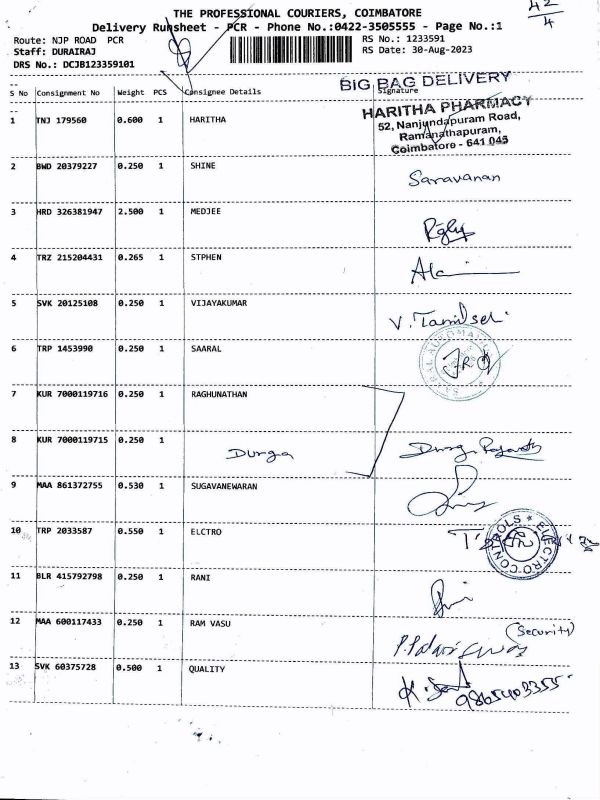 THE PROFESSIONAL COURIERS, COIMBATORE
42/4
Delivery Runsheet - PCR - Phone No.:0422-3505555 - Page No.:1
Route: NJP ROAD PCR
RS No.: 1233591
Staff: DURAIRAJ
RS Date: 30-Aug-2023
DRS No.: DCJB123359101
BIG BAG DELIVERY
S No Consignment No Weight PCS Consignee Details Signature
1 TNJ 179560 0.600 1 HARITHA
HARITHA PHARMACY
52, Nanjundapuram Road,
Ramanathapuram,
Coimbatore - 641 045
2 BWD 20379227 0.250 1 SHINE
Saravanan
3 HRD 326381947 2.500 1 MEDJEE
4 TRZ 215204431 0.265 1 STPHEN
5 SVK 20125108 0.250 1 VIJAYAKUMAR
V. Tamilsel
6 TRP 1453990 0.250 1 SAARAL
7 KUR 7000119716 0.250 1 RAGHUNATHAN
8 KUR 7000119715 0.250 1
Durga
9 MAA 861372755 0.530 1 SUGAVANEWARAN
10 TRP 2033587 0.550 1 ELCTRO
ELECTRO CONTROLS
11 BLR 415792798 0.250 1 RANI
12 MAA 600117433 0.250 1 RAM VASU
(Security)
13 SVK 60375728 0.500 1 QUALITY
9865403355